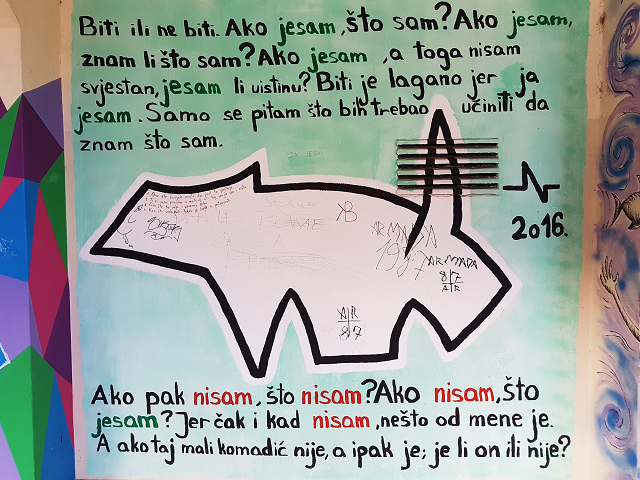 Biti ili ne biti. Ako jesam, što sam? Ako jesam,
znam li što sam? Ako jesam, a toga nisam
svjestan, jesam li uistinu? Biti je lagano jer ja
jesam. Samo se pitam što bih trebao učiniti da
znam što sam.
ARMADA
1987
ARMADA
8 7
A R
A R
8 7
2016.
Ako pak nisam, što nisam? Ako nisam, što
jesam? Jer čak i kad nisam, nešto od mene je.
A ako taj mali komadić nije, a ipak je; je li on ili nije?